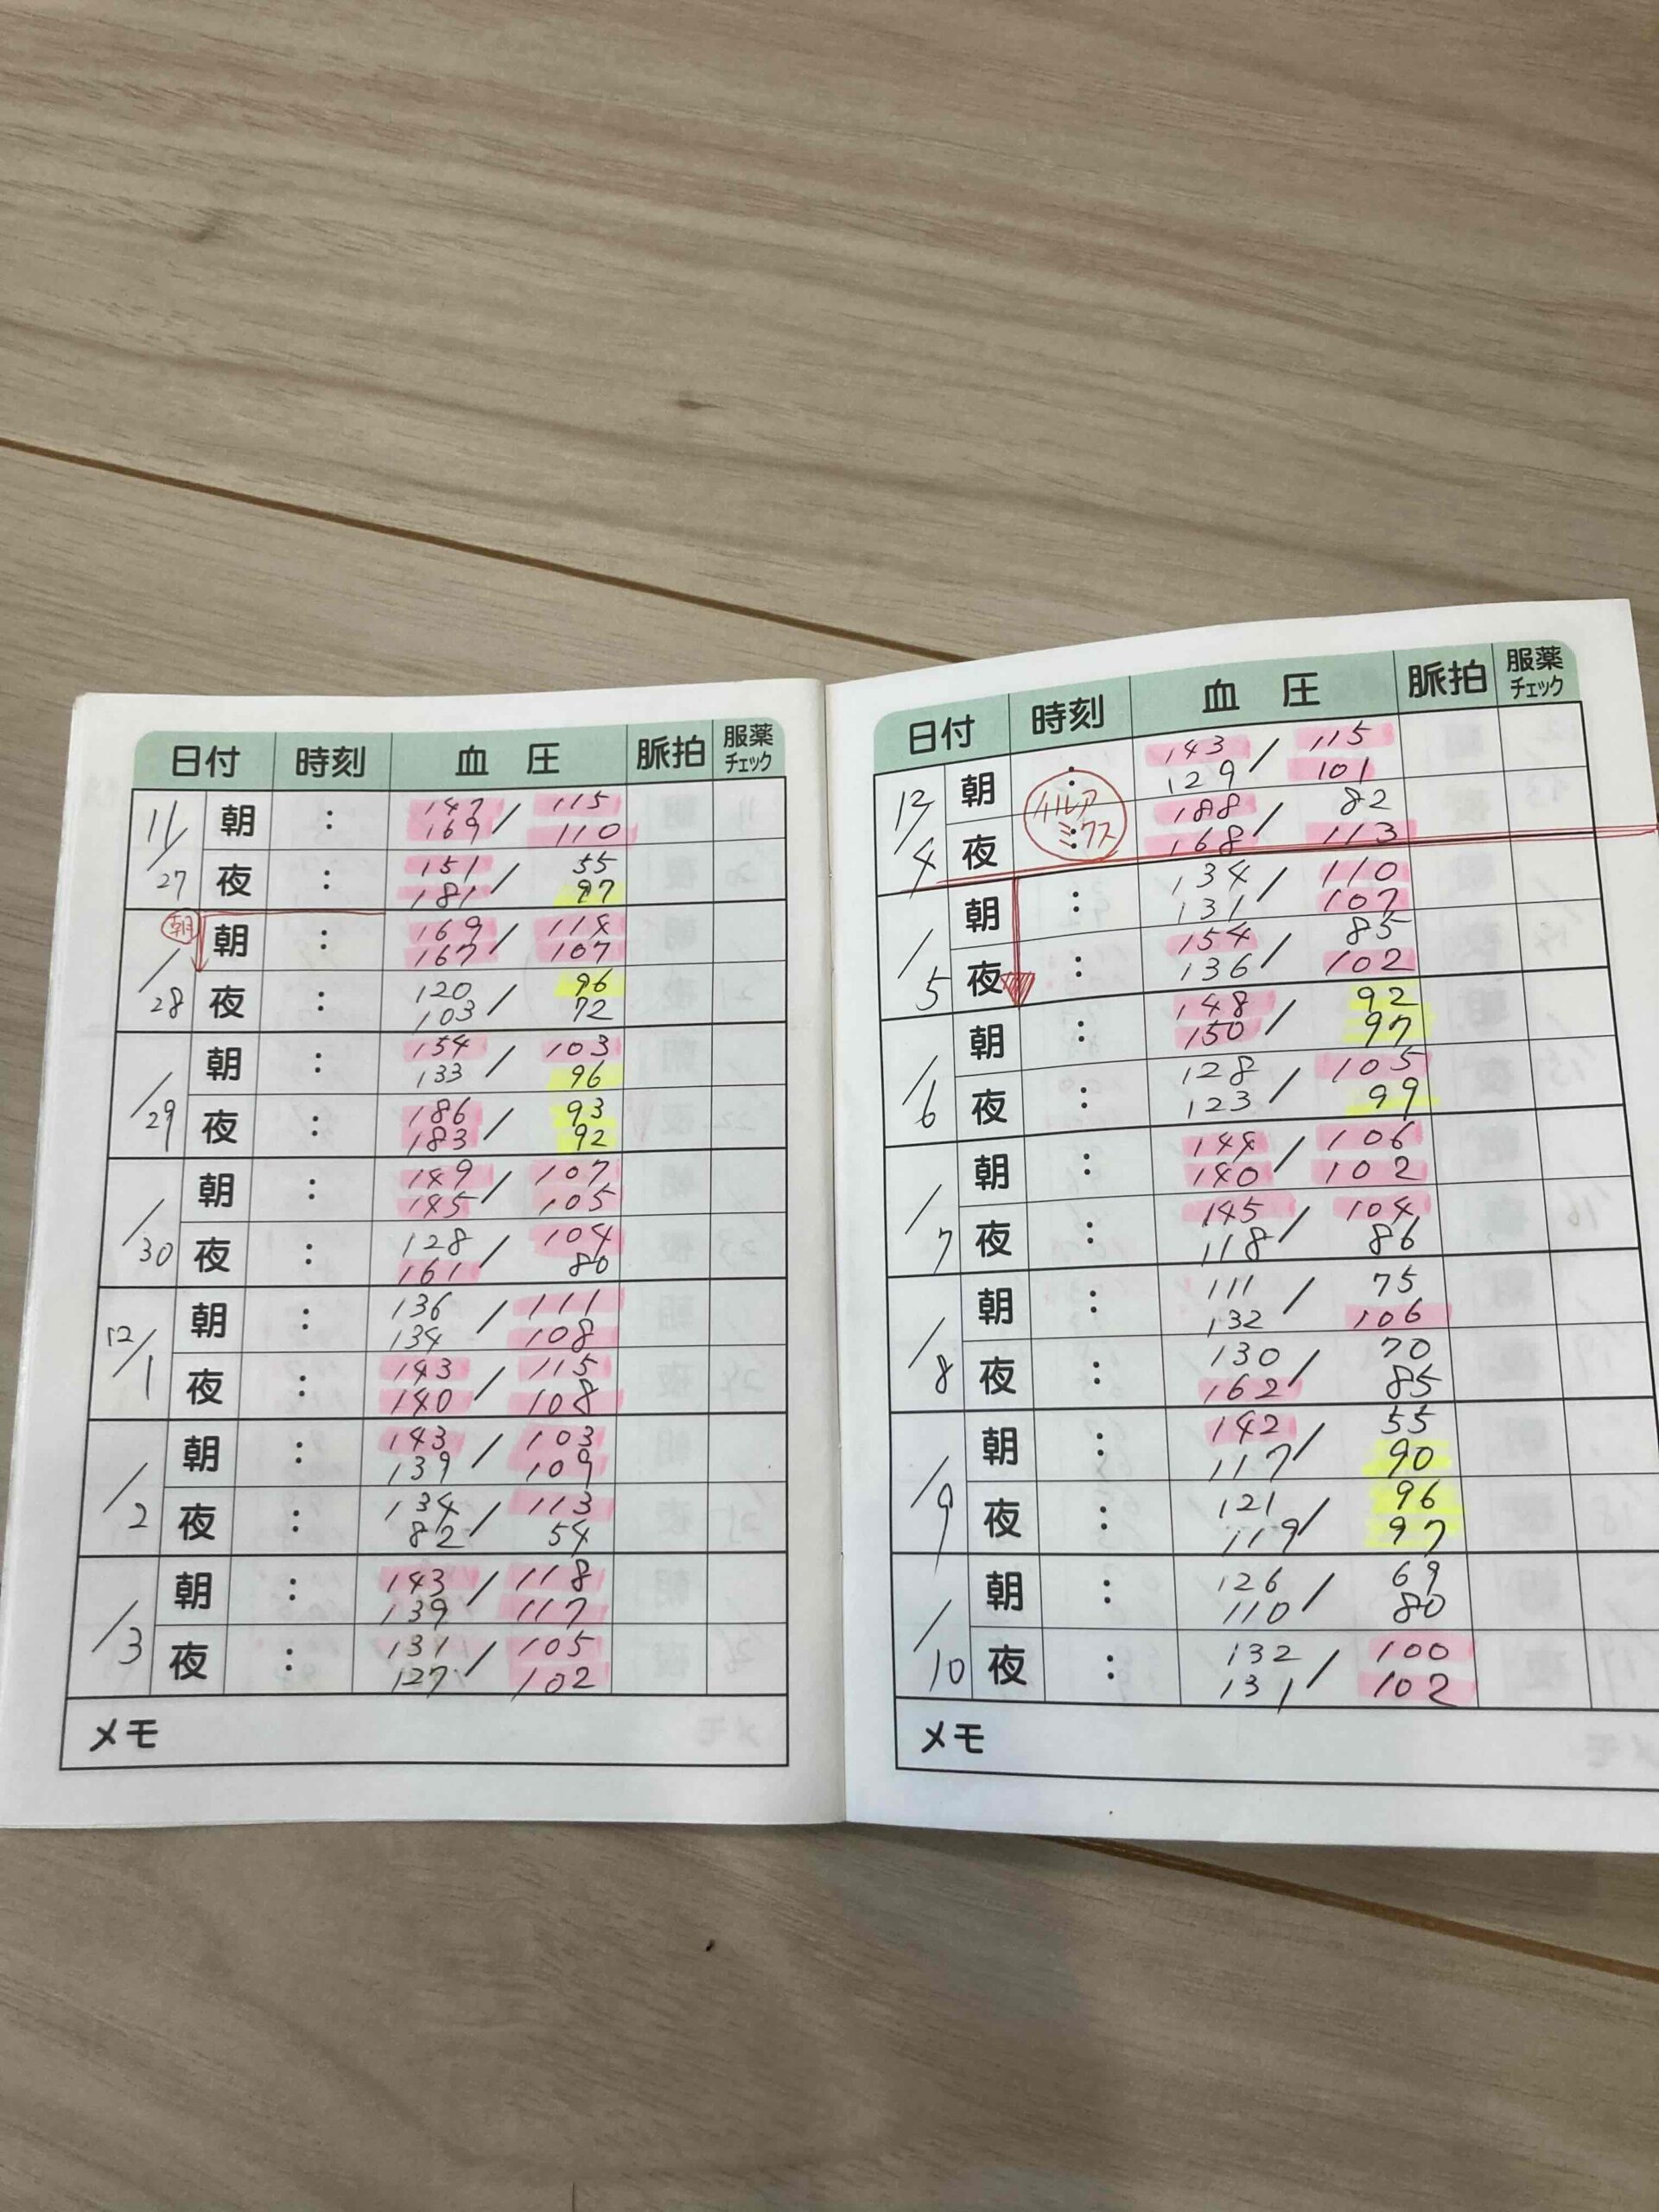 日付 時刻 血圧 脈拍 服薬チェック
11/27 朝 : 147/115
169 110
夜 : 151/55
181 97
朝
/28 朝 : 169/114
167 107
夜 : 120/96
103 72
/29 朝 : 154/103
133 96
夜 : 186/93
183 92
/30 朝 : 149/107
145 105
夜 : 128/104
161 80
12/1 朝 : 136/111
134 108
夜 : 143/115
140 108
/2 朝 : 143/103
139 109
夜 : 134/113
82 54
/3 朝 : 143/118
139 117
夜 : 131/105
127 102
メモ
日付 時刻 血圧 脈拍 服薬チェック
12/4 朝 : 143/115
129 101
夜 : 188/82
168 113
ミクス
/5 朝 : 134/110
131 107
夜 : 154/85
136 102
/6 朝 : 148/92
150 97
夜 : 128/105
123 99
/7 朝 : 144/106
140 102
夜 : 145/104
118 86
/8 朝 : 111/75
132 106
夜 : 130/70
162 85
/9 朝 : 142/55
117 90
夜 : 121/96
119 97
/10 朝 : 126/69
110 80
夜 : 132/100
131 102
メモ